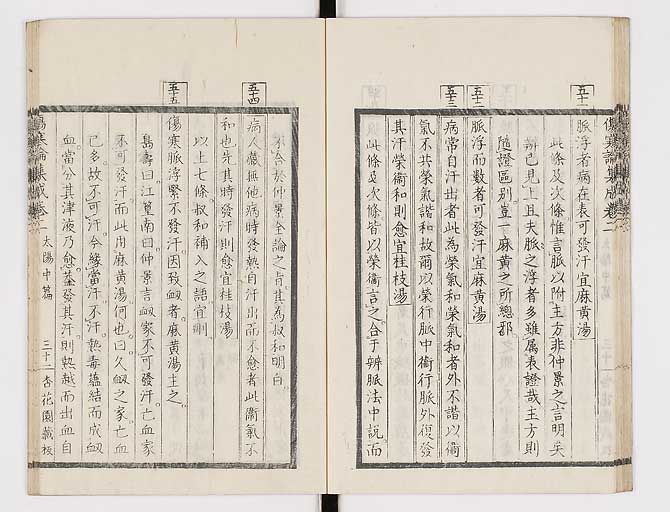 傷寒論集成卷二
五十一
脈浮者病在表可發汗宜麻黄湯
此條及次條惟言脈以附主方非仲景之言明矣
辨已見上且夫脈之浮者多雖属表證哉主方則
隨證區别豈一麻黄之所總鄀
五十二
脈浮而數者可發汗宜麻黄湯
五十三
病常自汗出者此為榮氣和榮氣和者外不諧以衞
氣不共榮氣諧和故爾以榮行脈中衞行脈外復發
其汗榮衞和則愈宜桂枝湯
此條及次條皆以榮衞言之合于辨脈法中説而
不合於仲景全論之旨其為叔和明白
五十四
病人藏無他病時發熱自汗出而不愈者此衞氣不
和也先其時發汗則愈宜桂枝湯
以上七條叔和補入之語宜刪
五十五
傷寒脈浮緊不發汗因致衂者麻黄湯主之
爲壽曰江篁南曰仲景言衂家不可發汗亡血家
不可發汗而此用麻黄湯何也曰久衂之家亡血
已多故不可汗今緣當汗不汗熱毒蘊結而成衂
血當分其津液乃愈蓋發其汗則熱越而出血自
傷寒論集成卷二 太陽中篇 三十二 杏花園藏板